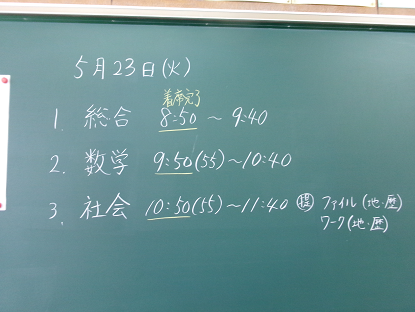 5月23日(火)
着席完了
1. 総合 8:50 ～ 9:40
2. 数学 9:50(55)～10:40
3. 社会 10:50(55)～11:40 ㊥ファイル(地・歴)
ワーク(地・歴)